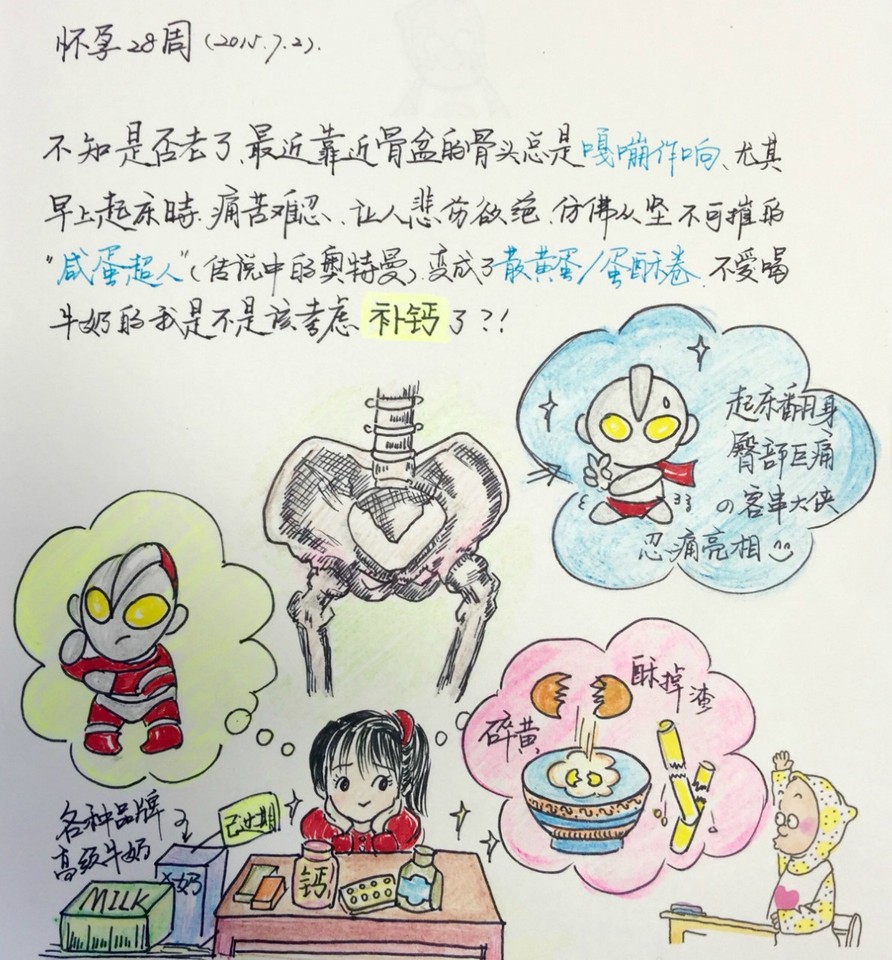 怀孕28周(2015.7.2).
不知是否老了、最近靠近骨盆的骨头总是嘎嘣作响、尤其
早上起床時.痛苦难忍、让人悲伤欲绝.仿佛从坚不可摧的
"咸蛋超人"(传说中的奥特曼)变成了散黄蛋/蛋酥卷.不爱喝
牛奶的我是不是该考虑 补钙了?!
起床翻身
臀部巨痛
の客串大侠
忍痛亮相
酥掉渣
碎黄
各种品牌
高级牛奶
已过期
MILK
奶
钙